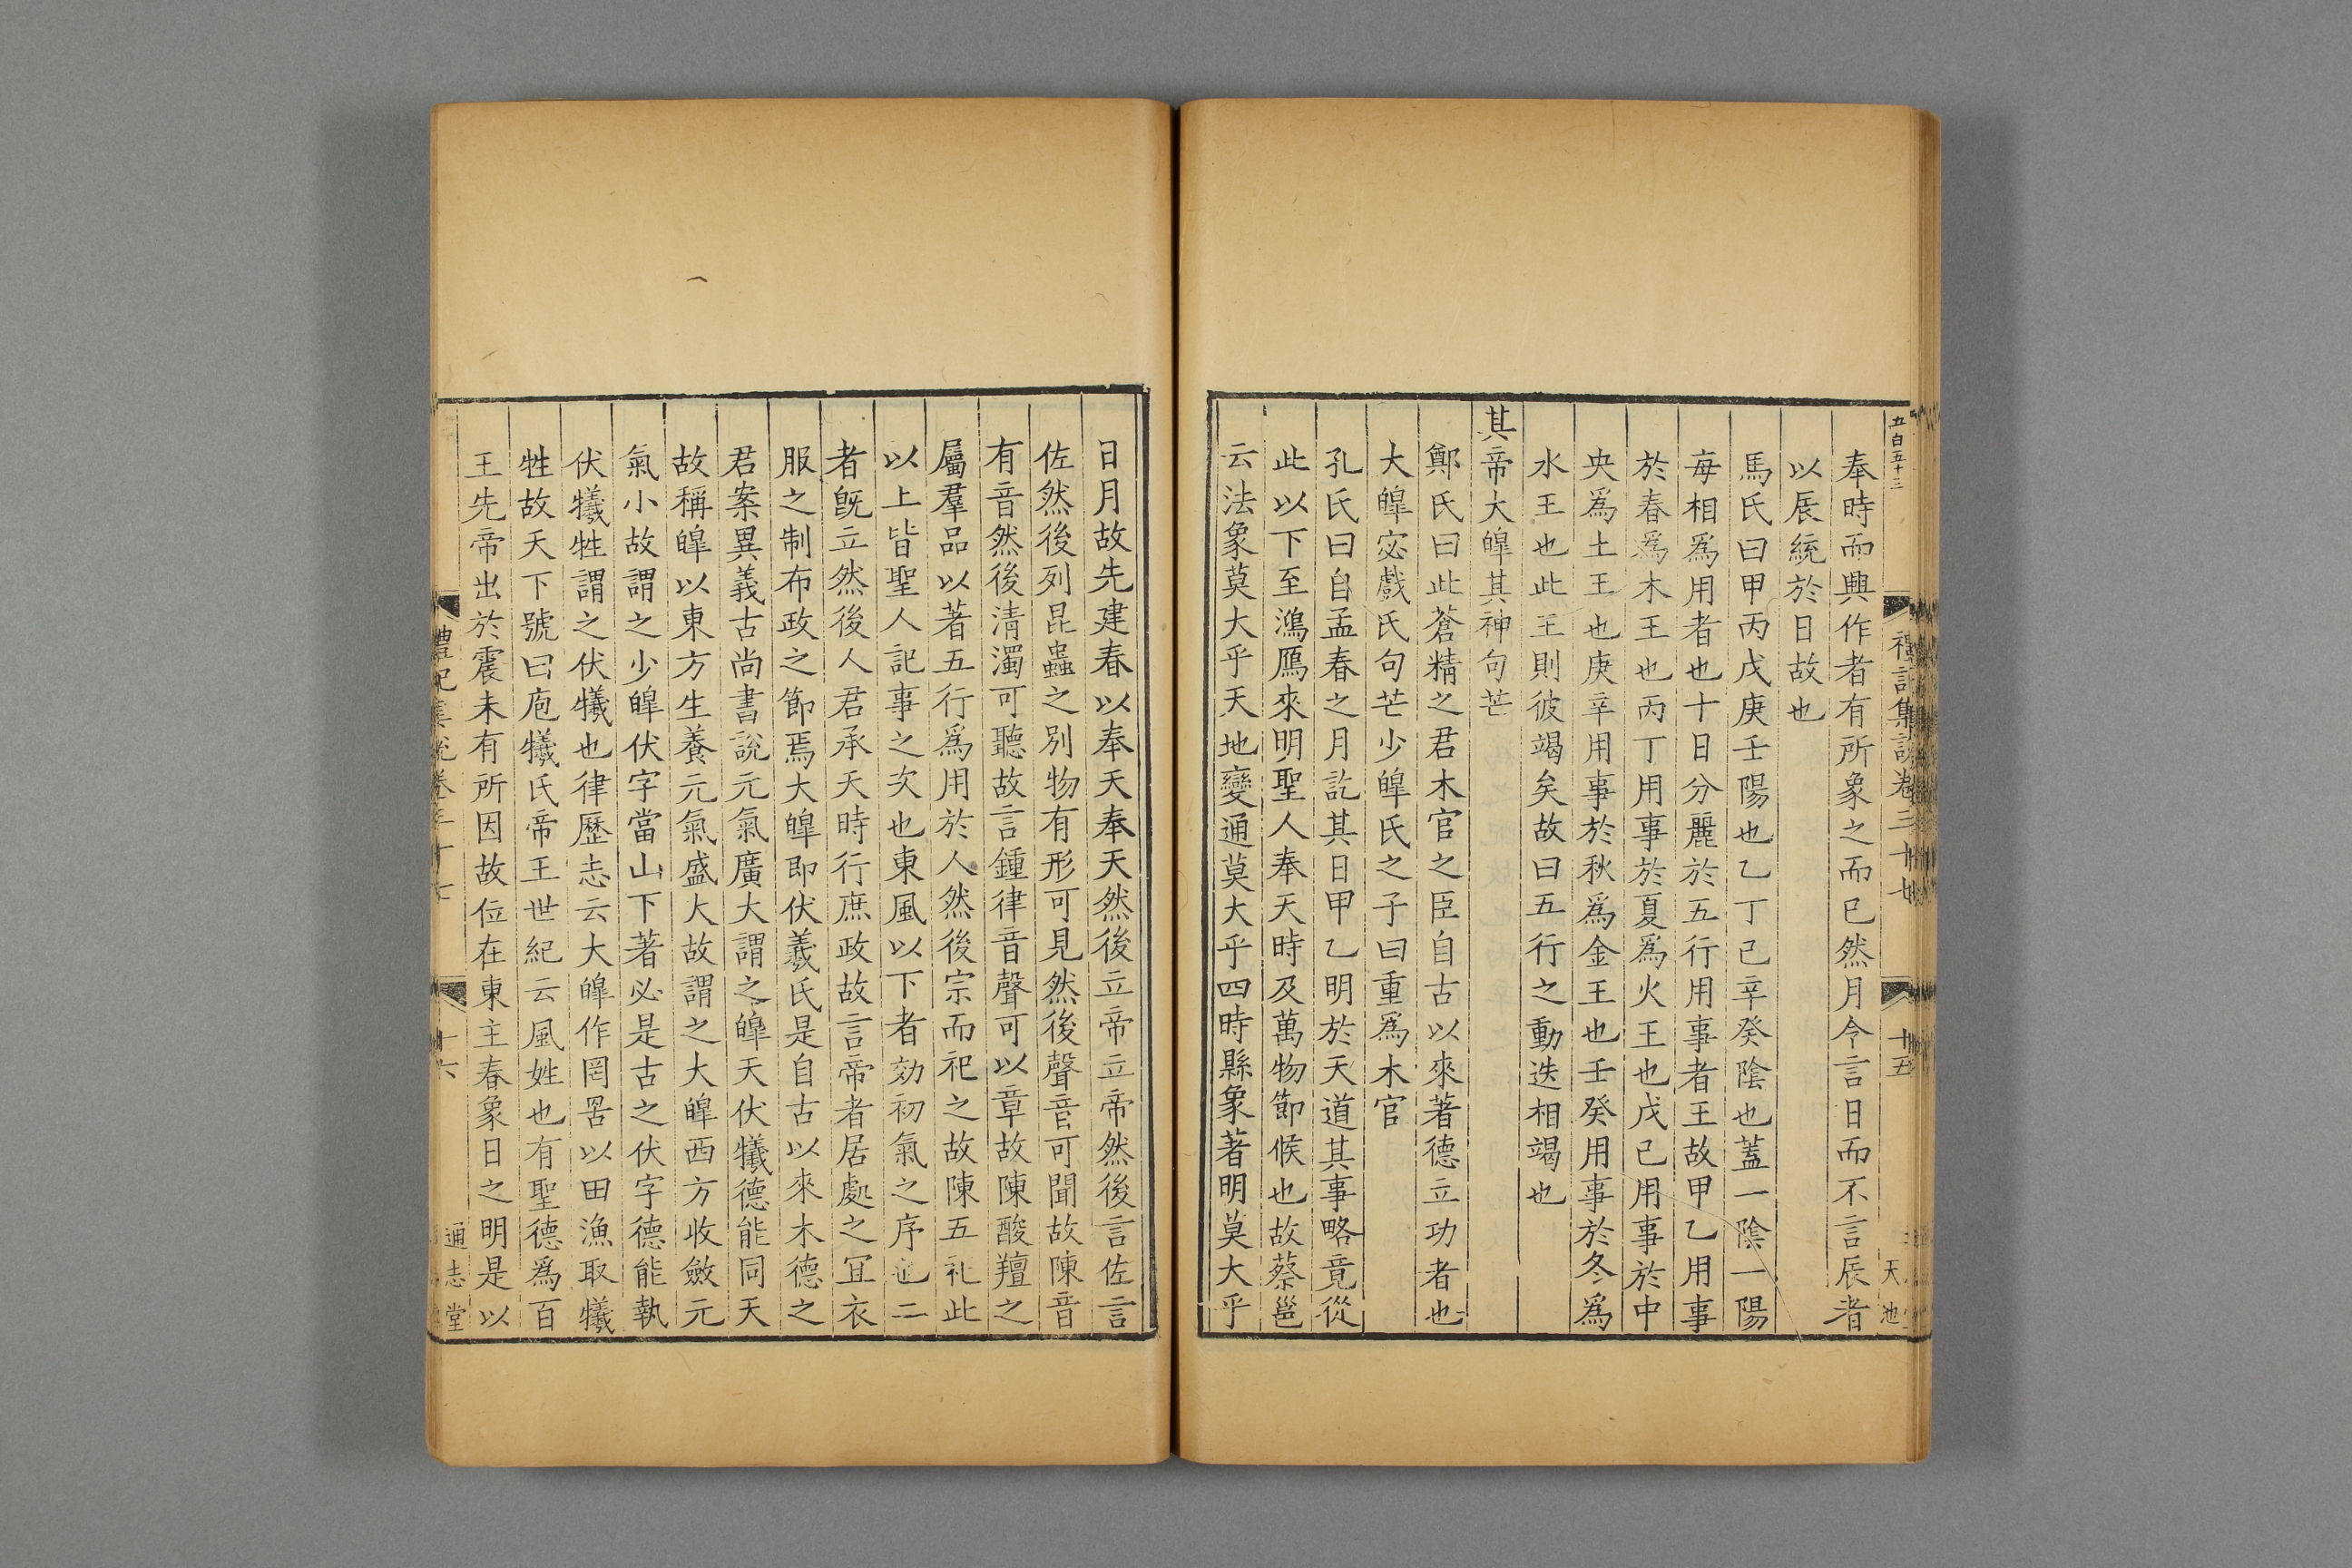 五百五十三
禮記集說卷三十七
十五
天池
奉時而興作者有所象之而已然月令言日而不言辰者
以辰統於日故也
馬氏曰甲丙戊庚壬陽也乙丁己辛癸陰也蓋一陰一陽
每相爲用者也十日分麗於五行用事者王故甲乙用事
於春爲木王也丙丁用事於夏爲火王也戊己用事於中
央爲土王也庚辛用事於秋爲金王也壬癸用事於冬爲
水王也此王則彼竭矣故曰五行之動迭相竭也
其帝大皥其神句芒
鄭氏曰此蒼精之君木官之臣自古以來著德立功者也
大皥宓戲氏句芒少皥氏之子曰重爲木官
孔氏曰自孟春之月訖其日甲乙明於天道其事略竟從
此以下至鴻鴈來明聖人奉天時及萬物節候也故蔡邕
云法象莫大乎天地變通莫大乎四時縣象著明莫大乎
日月故先建春以奉天奉天然後立帝立帝然後言佐言
佐然後列昆蟲之別物有形可見然後聲音可聞故陳音
有音然後清濁可聽故言鍾律音聲可以章故陳酸羶之
屬羣品以著五行爲用於人然後宗而祀之故陳五祀此
以上皆聖人記事之次也東風以下者効初氣之序也二
者旣立然後人君承天時行庶政故言帝者居處之宜衣
服之制布政之節焉大皥即伏羲氏是自古以來木德之
君案異義古尚書說元氣廣大謂之皥天伏犧德能同天
故稱皥以東方生養元氣盛大故謂之大皥西方收斂元
氣小故謂之少皥伏字當山下著必是古之伏字德能執
伏犧牲謂之伏犧也律歷志云大皥作罔罟以田漁取犧
牲故天下號曰庖犧氏帝王世紀云風姓也有聖德爲百
王先帝出於震未有所因故位在東主春象日之明是以
禮記集說卷三十七
十六
通志堂